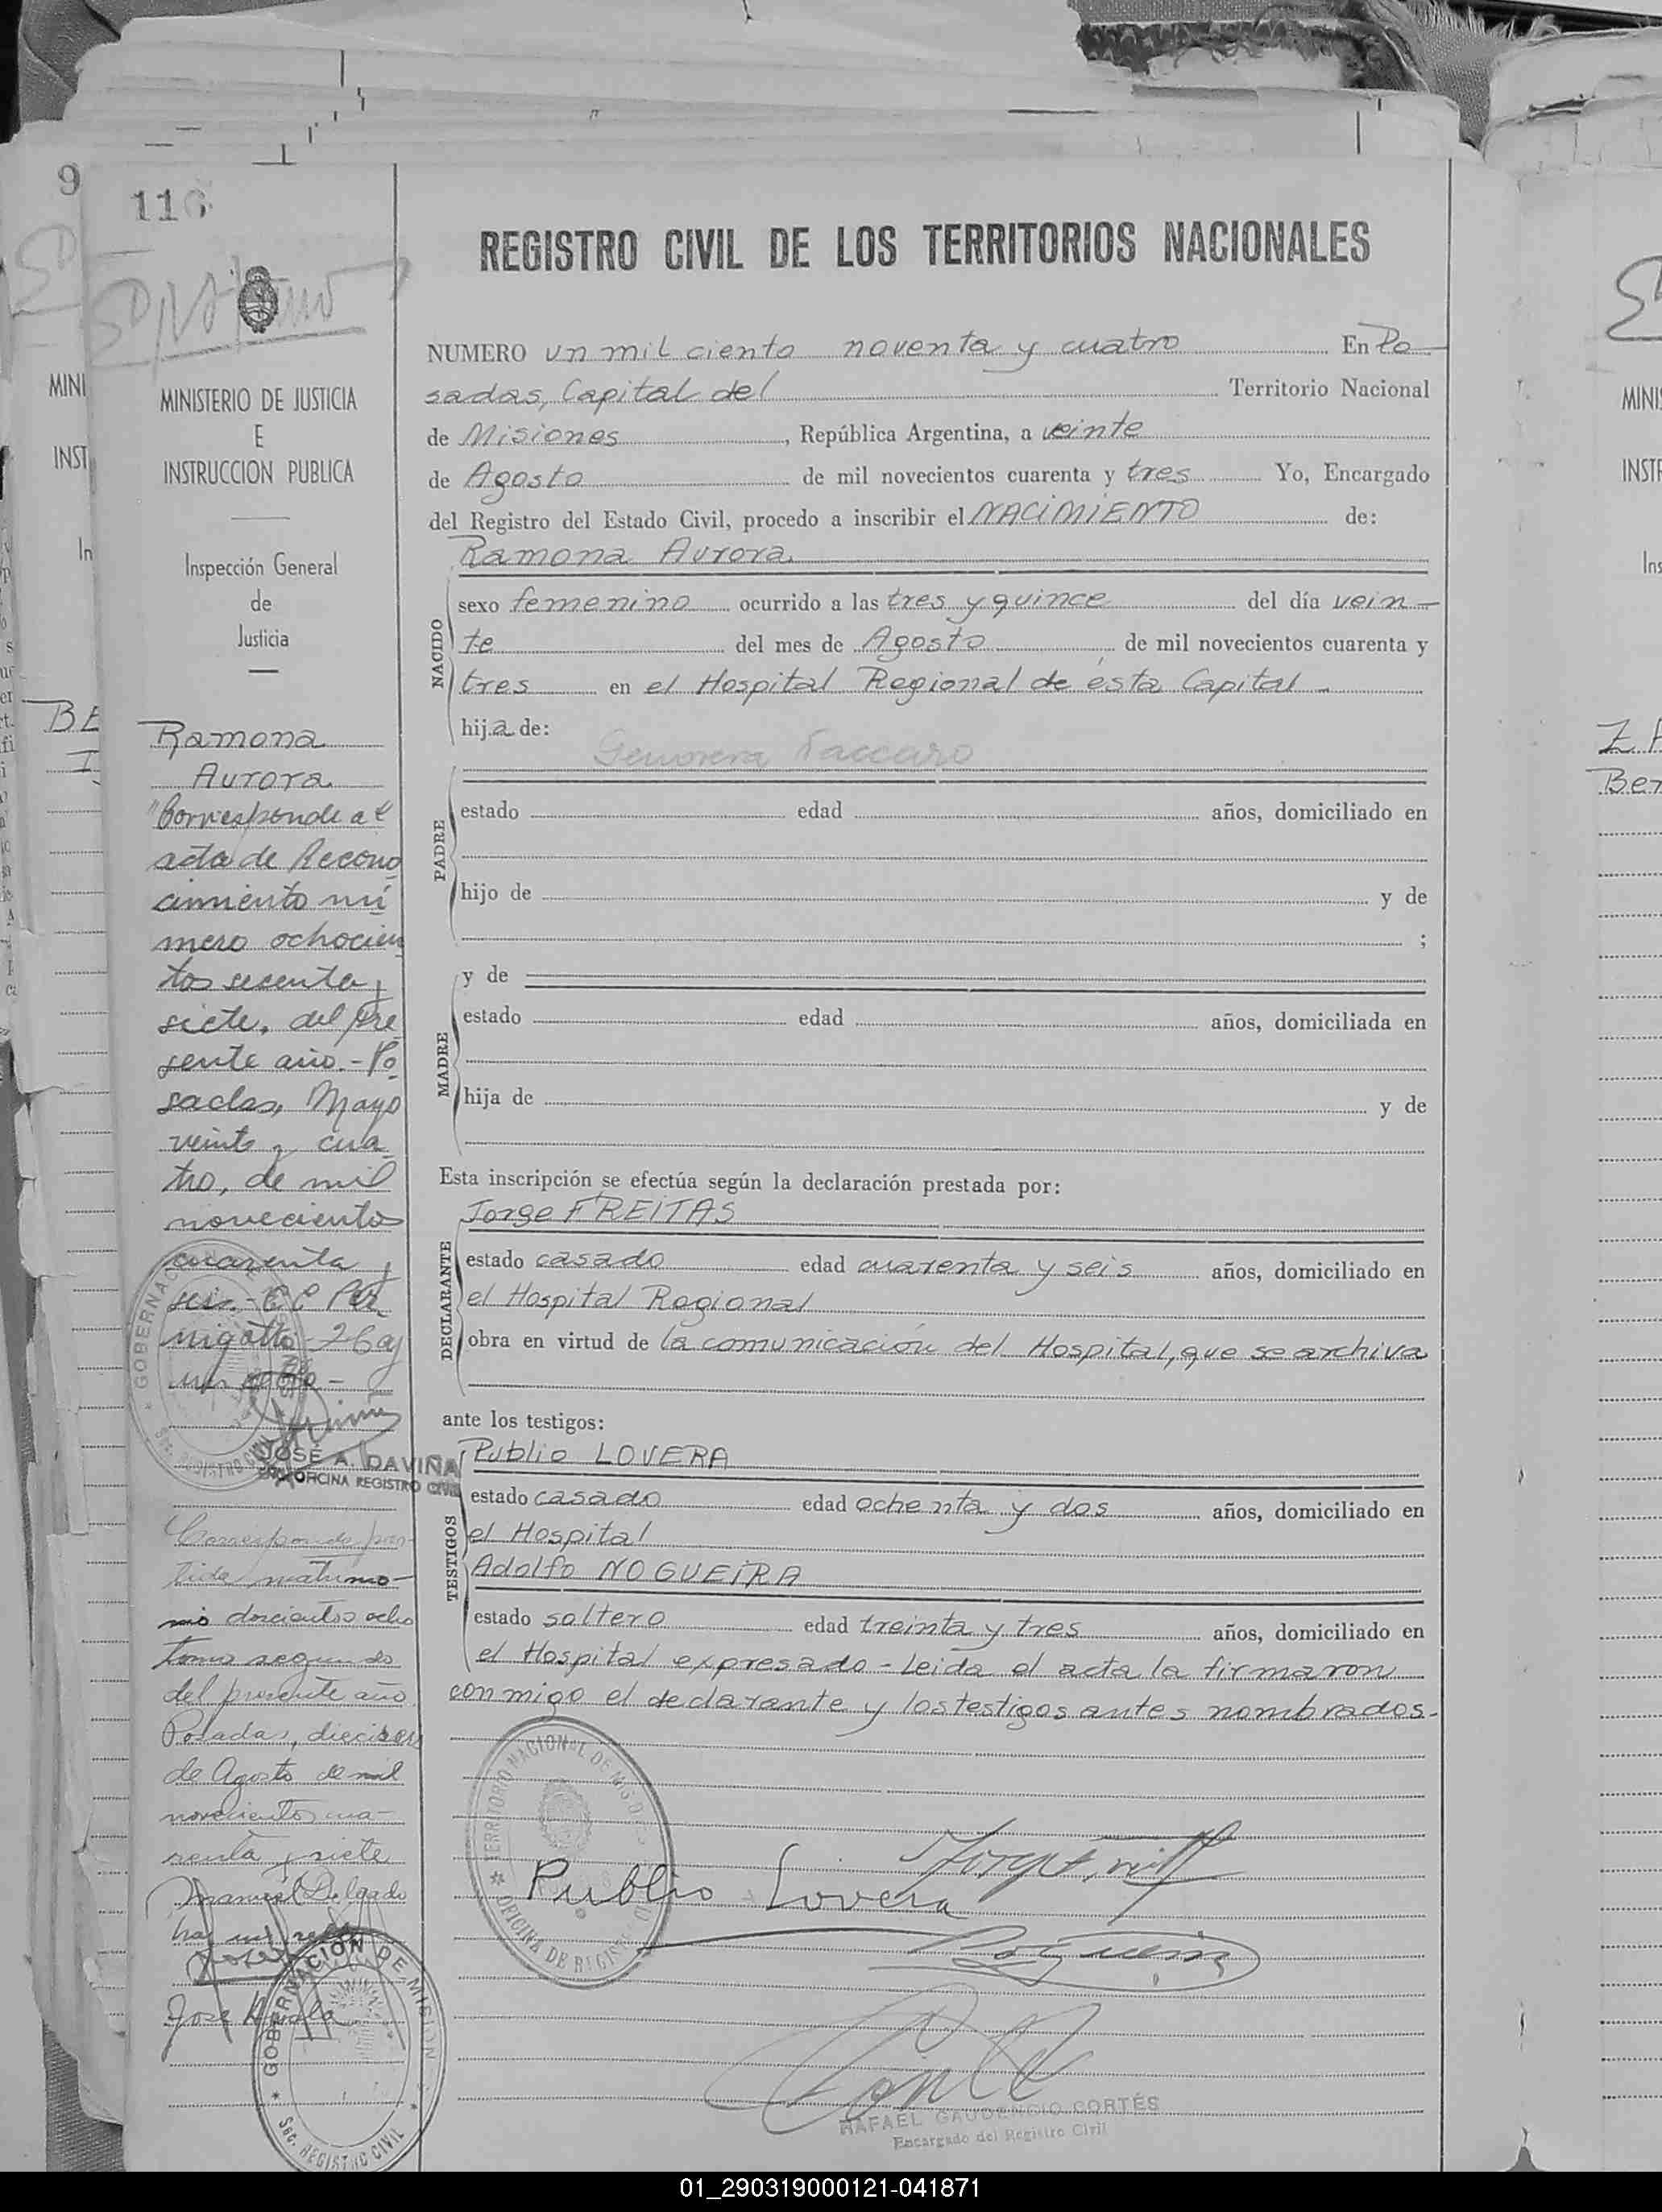 9
116
MINISTERIO DE JUSTICIA
E
INSTRUCCION PUBLICA
Inspección General
de
Justicia
Ramona
Aurora
"Corresponde al
acta de Recono
cimiento nú
mero ochocien
tos secenta y
siete, del pre
sente año.- Po
sadas, Mayo
veinte y cua
tro, de mil
novecientos
cuarenta y
seis.-
JOSÉ A. DAVIÑA
OFICINA REGISTRO CIVIL
Corresponde par-
tida matrimo-
nio doscientos ocho
Tomo segundo
del presente año
Posadas, dieciseis
de Agosto de mil
novecientos cua-
renta y siete
Manuel Delgado
José
GOBERNACIÓN DE MISIONES
SEC. REGISTRO CIVIL
REGISTRO CIVIL DE LOS TERRITORIOS NACIONALES
NUMERO un mil ciento noventa y cuatro En Po
sadas, Capital del Territorio Nacional
de Misiones, República Argentina, a veinte
de Agosto de mil novecientos cuarenta y tres Yo, Encargado
del Registro del Estado Civil, procedo a inscribir el NACIMIENTO de:
Ramona Aurora
NACIDO
sexo femenino ocurrido a las tres y quince del día vein-
te del mes de Agosto, de mil novecientos cuarenta y
tres en el Hospital Regional de ésta Capital.-
hija de:
PADRE
estado edad años, domiciliado en
hijo de y de
;
MADRE
y de
estado edad años, domiciliada en
hija de y de
Esta inscripción se efectúa según la declaración prestada por:
DECLARANTE
Jorge FREITAS
estado casado edad cuarenta y seis años, domiciliado en
el Hospital Regional
obra en virtud de la comunicación del Hospital, que se archiva
ante los testigos:
TESTIGOS
Publio LOVERA
estado casado edad ochenta y dos años, domiciliado en
el Hospital
Adolfo NOGUEIRA
estado soltero edad treinta y tres años, domiciliado en
el Hospital expresado - Leida el acta la firmaron
conmigo el declarante y los testigos antes nombrados.-
TERRITORIO NACIONAL DE MISIONES
OFICINA DE REGISTRO
Publio Lovera
RAFAEL GAUDENCIO CORTÉS
Encargado del Registro Civil
01_290319000121-041871